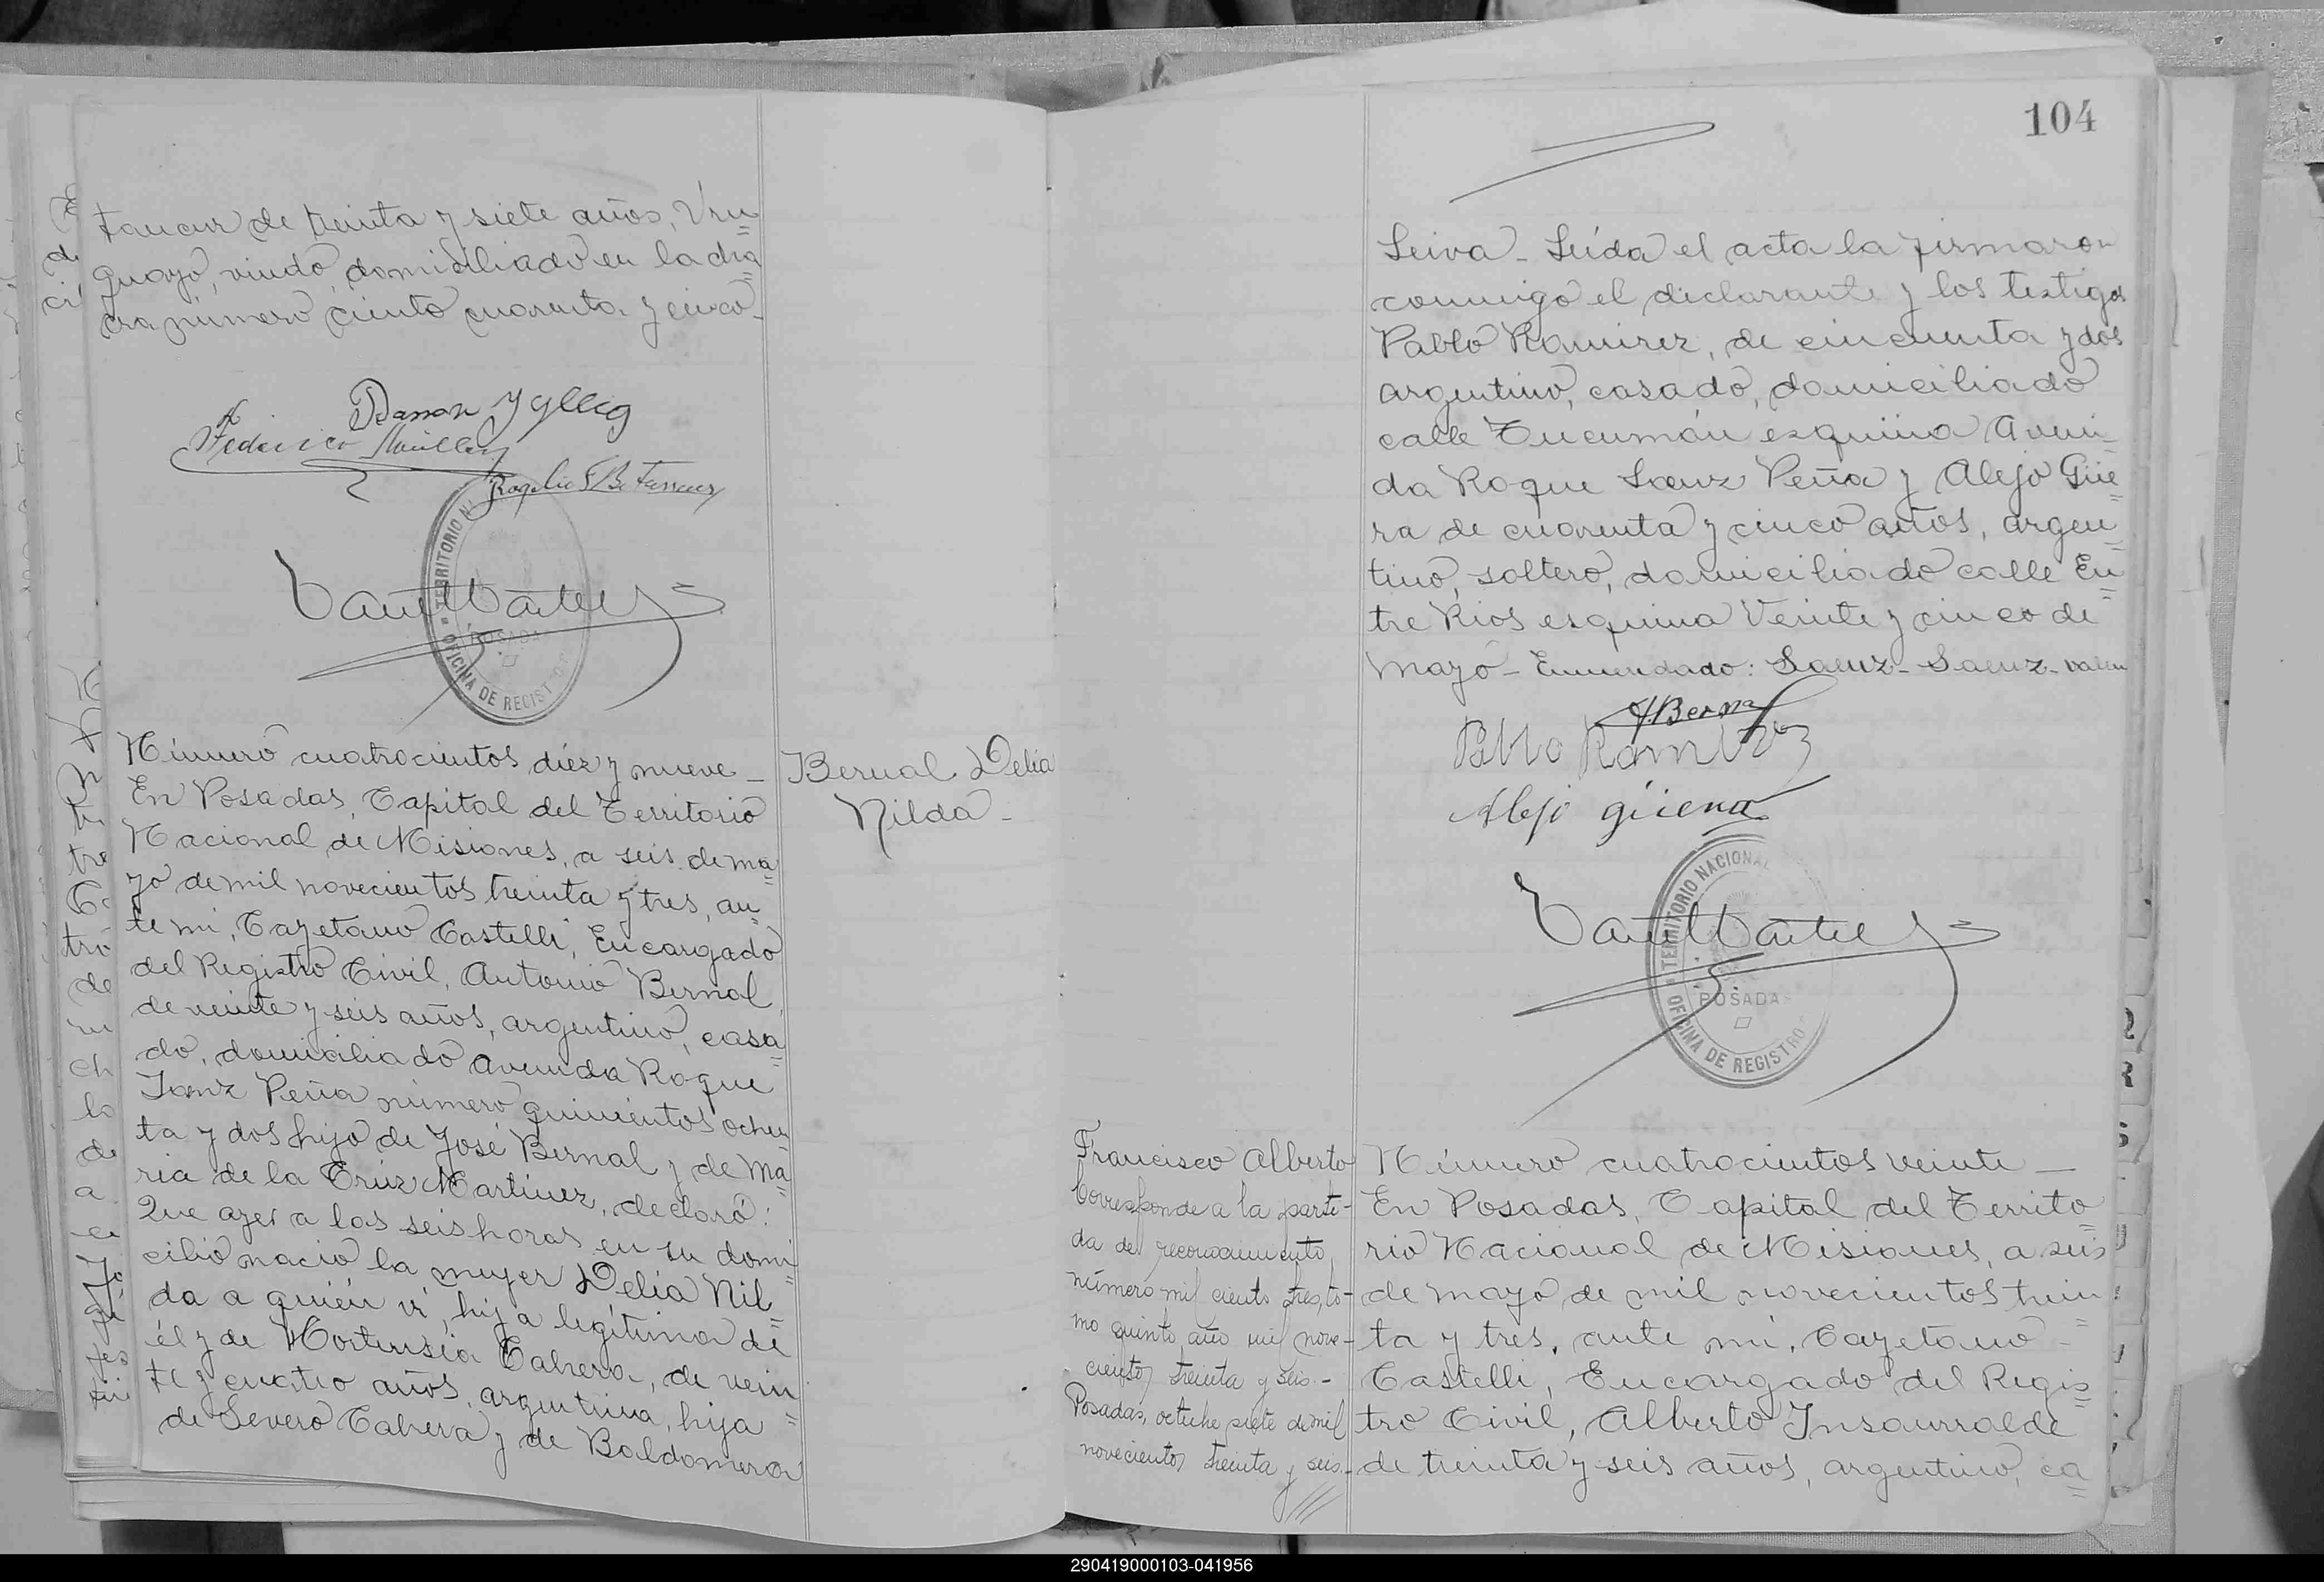 taucur de treinta y siete años, Uru=
guayo, viudo, domiciliado en la cha=
cra número ciento cuarenta y cinco-
Ramon
Federico Müller
Rogelio
TERRITORIO N
POSADA
OFICINA DE REGISTRO
Número cuatrocientos diez y nueve -
En Posadas, Capital del Territorio
Nacional de Misiones, a seis de ma=
yo de mil novecientos treinta y tres, an=
te mi, Cayetano Castelli, Encargado
del Registro Civil, Antonio Bernal
de veinte y seis años, argentino, casa=
do, domiciliado Avenida Roque
Saenz Peña número quinientos ochen
ta y dos hijo de José Bernal y de Ma=
ria de la Cruz Martinez, declaró:
Que ayer a las seis horas en su domi=
cilio nació la mujer Delia Nil=
da a quién vi, hija legítima de
él y de Hortensia Cabrera, de vein=
te y cuatro años, argentina, hija
de Severo Cabrera y de Baldomera
Bernal Delia
Nilda -
104
Leiva - Leída el acta la firmaron
conmigo el declarante y los testigos
Pablo Ramirez, de cincuenta y dos
argentino, casado, domiciliado
calle Tucumán esquina Aveni=
da Roque Saenz Peña y Alejo Güe=
ra de cuarenta y cinco años, argen=
tino, soltero, domiciliado calle En=
tre Rios esquina Veinte y cinco de
Mayo - Enmendado: Saenz - Saenz - valen
ABernal
Pablo Ramirez
Alejo güera
TERRITORIO NACIONAL
POSADAS
OFICINA DE REGISTRO
Francisco Alberto
Corresponde a la parti-
da de reconocimiento
número mil ciento tres, to-
mo quinto, año mil nove-
cientos treinta y seis -
Posadas, octubre siete de mil
novecientos treinta y seis.-
Número cuatrocientos veinte -
En Posadas, Capital del Territo=
rio Nacional de Misiones, a seis
de mayo de mil novecientos trein
ta y tres, ante mi, Cayetano =
Castelli, Encargado del Regis=
tro Civil, Alberto Insaurralde
de treinta y seis años, argentino, ca=
290419000103-041956